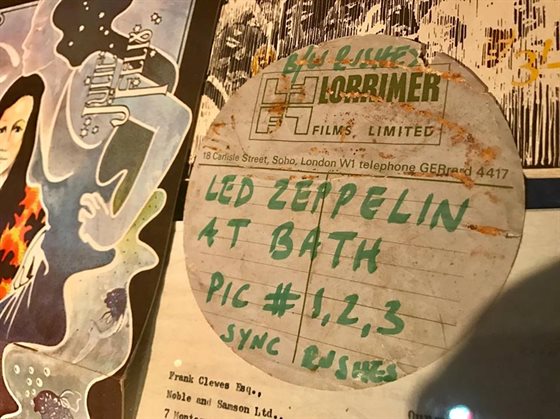 Julie
Felix
B/W RUSHES
LORRIMER
FILMS, LIMITED
18 Carlisle Street, Soho, London W1 telephone GERrard 4417
LED ZEPPELIN
AT BATH
PIC # 1, 2, 3
SYNC RUSHES
Frank Clewes Esq.,
Noble and Samson Ltd.,